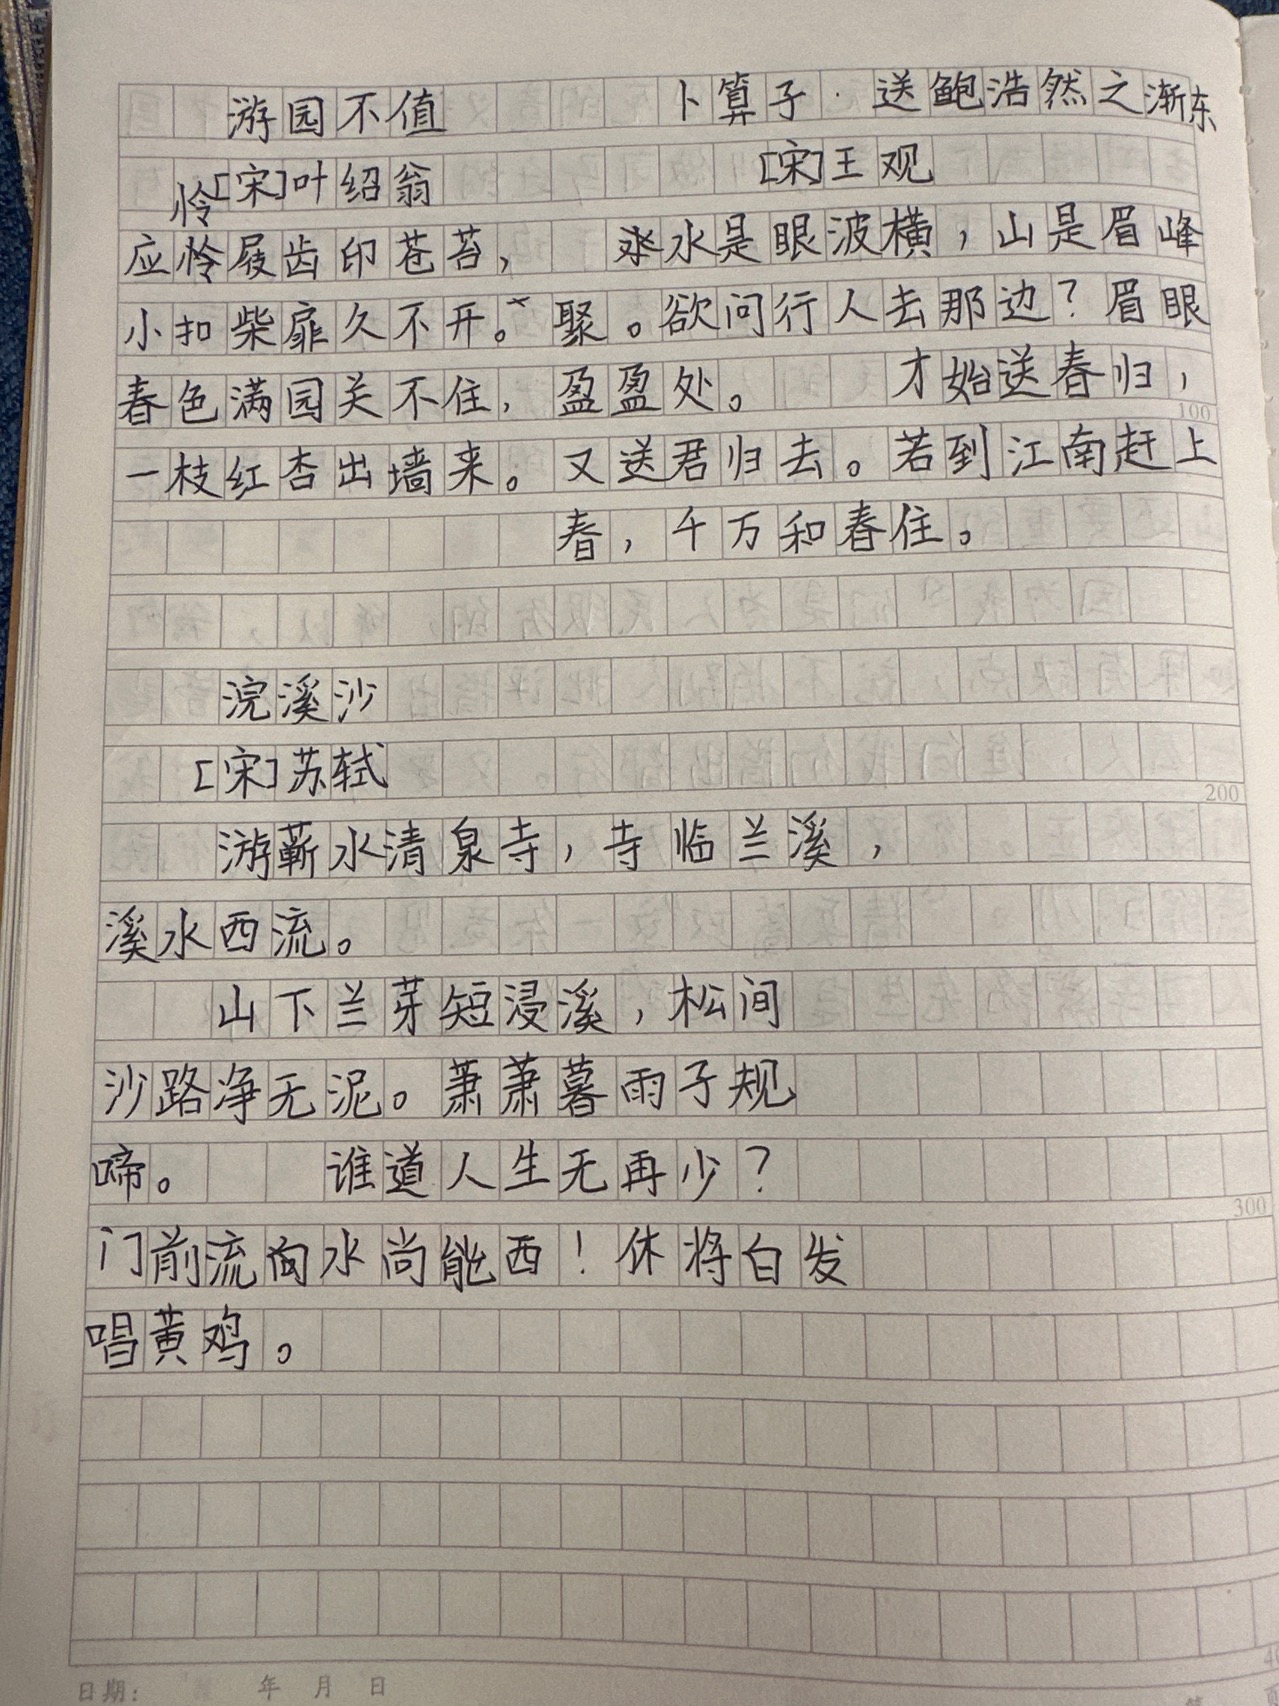 游园不值
[宋]叶绍翁
怜
应怜屐齿印苍苔，
小扣柴扉久不开。
春色满园关不住，
一枝红杏出墙来。
卜算子·送鲍浩然之渐东
[宋]王观
水是眼波横，山是眉峰
聚。欲问行人去那边？眉眼
盈盈处。 才始送春归，
又送君归去。若到江南赶上
春，千万和春住。
浣溪沙
[宋]苏轼
游蕲水清泉寺，寺临兰溪，
溪水西流。
山下兰芽短浸溪，松间
沙路净无泥。萧萧暮雨子规
啼。 谁道人生无再少？
门前流向水尚能西！休将白发
唱黄鸡。
100
200
300
日期： 年 月 日